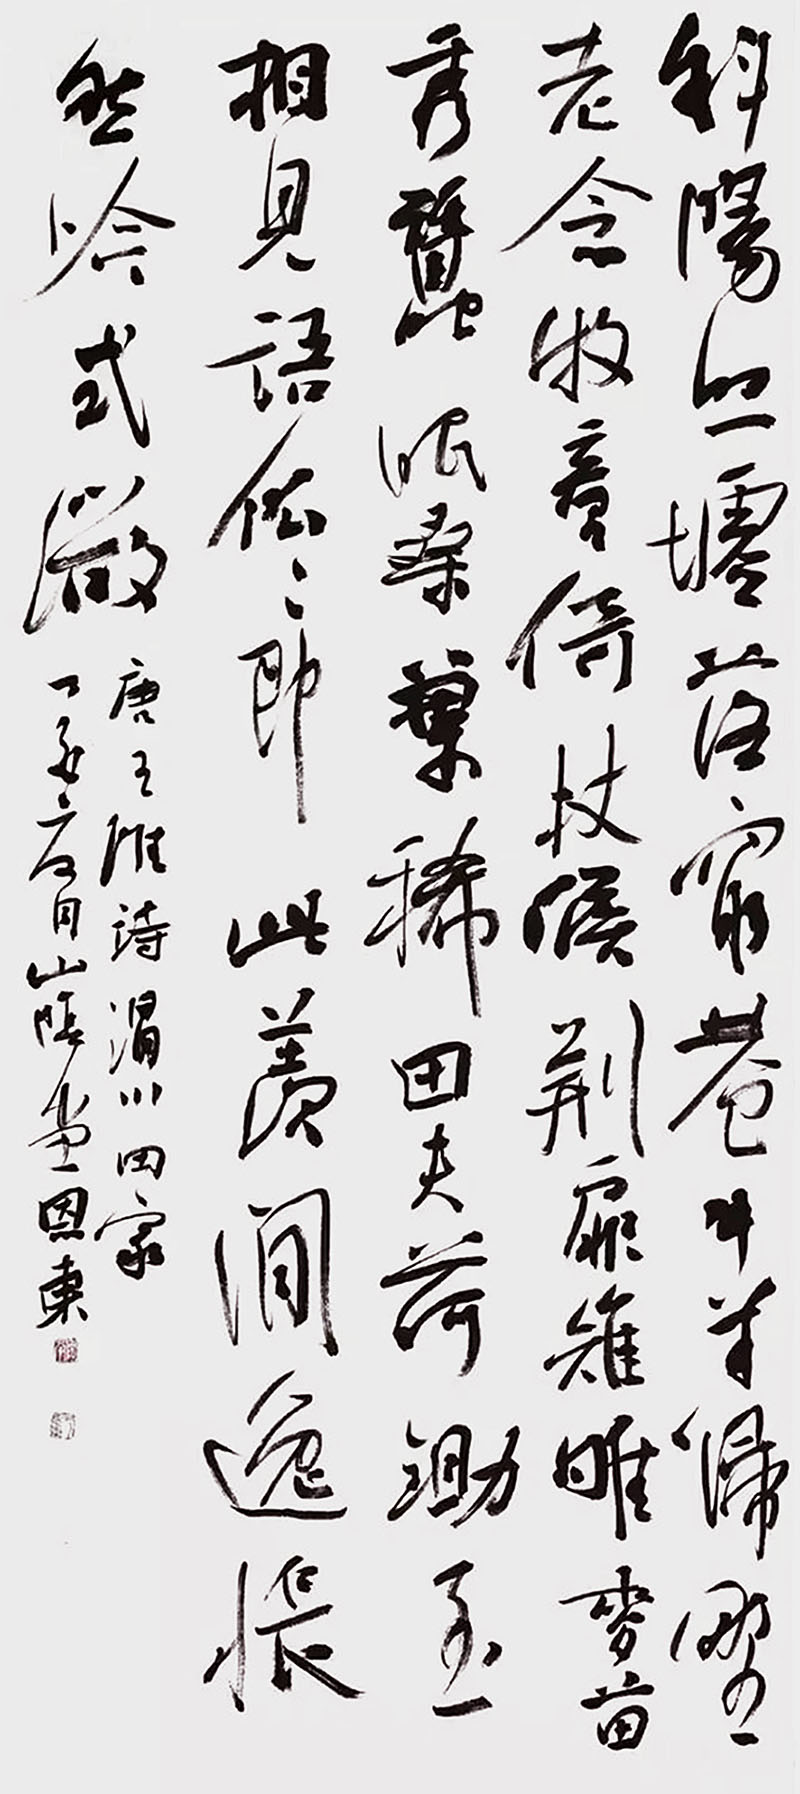 斜陽照墟落窮巷牛羊歸野
老念牧童倚杖候荊扉雉雊麥苗
秀蠶眠桑葉稀田夫荷鋤至
相見語依〻即此羨閒逸悵
然吟式微
唐王維詩渭川田家
丁亥夏月山陰恩東